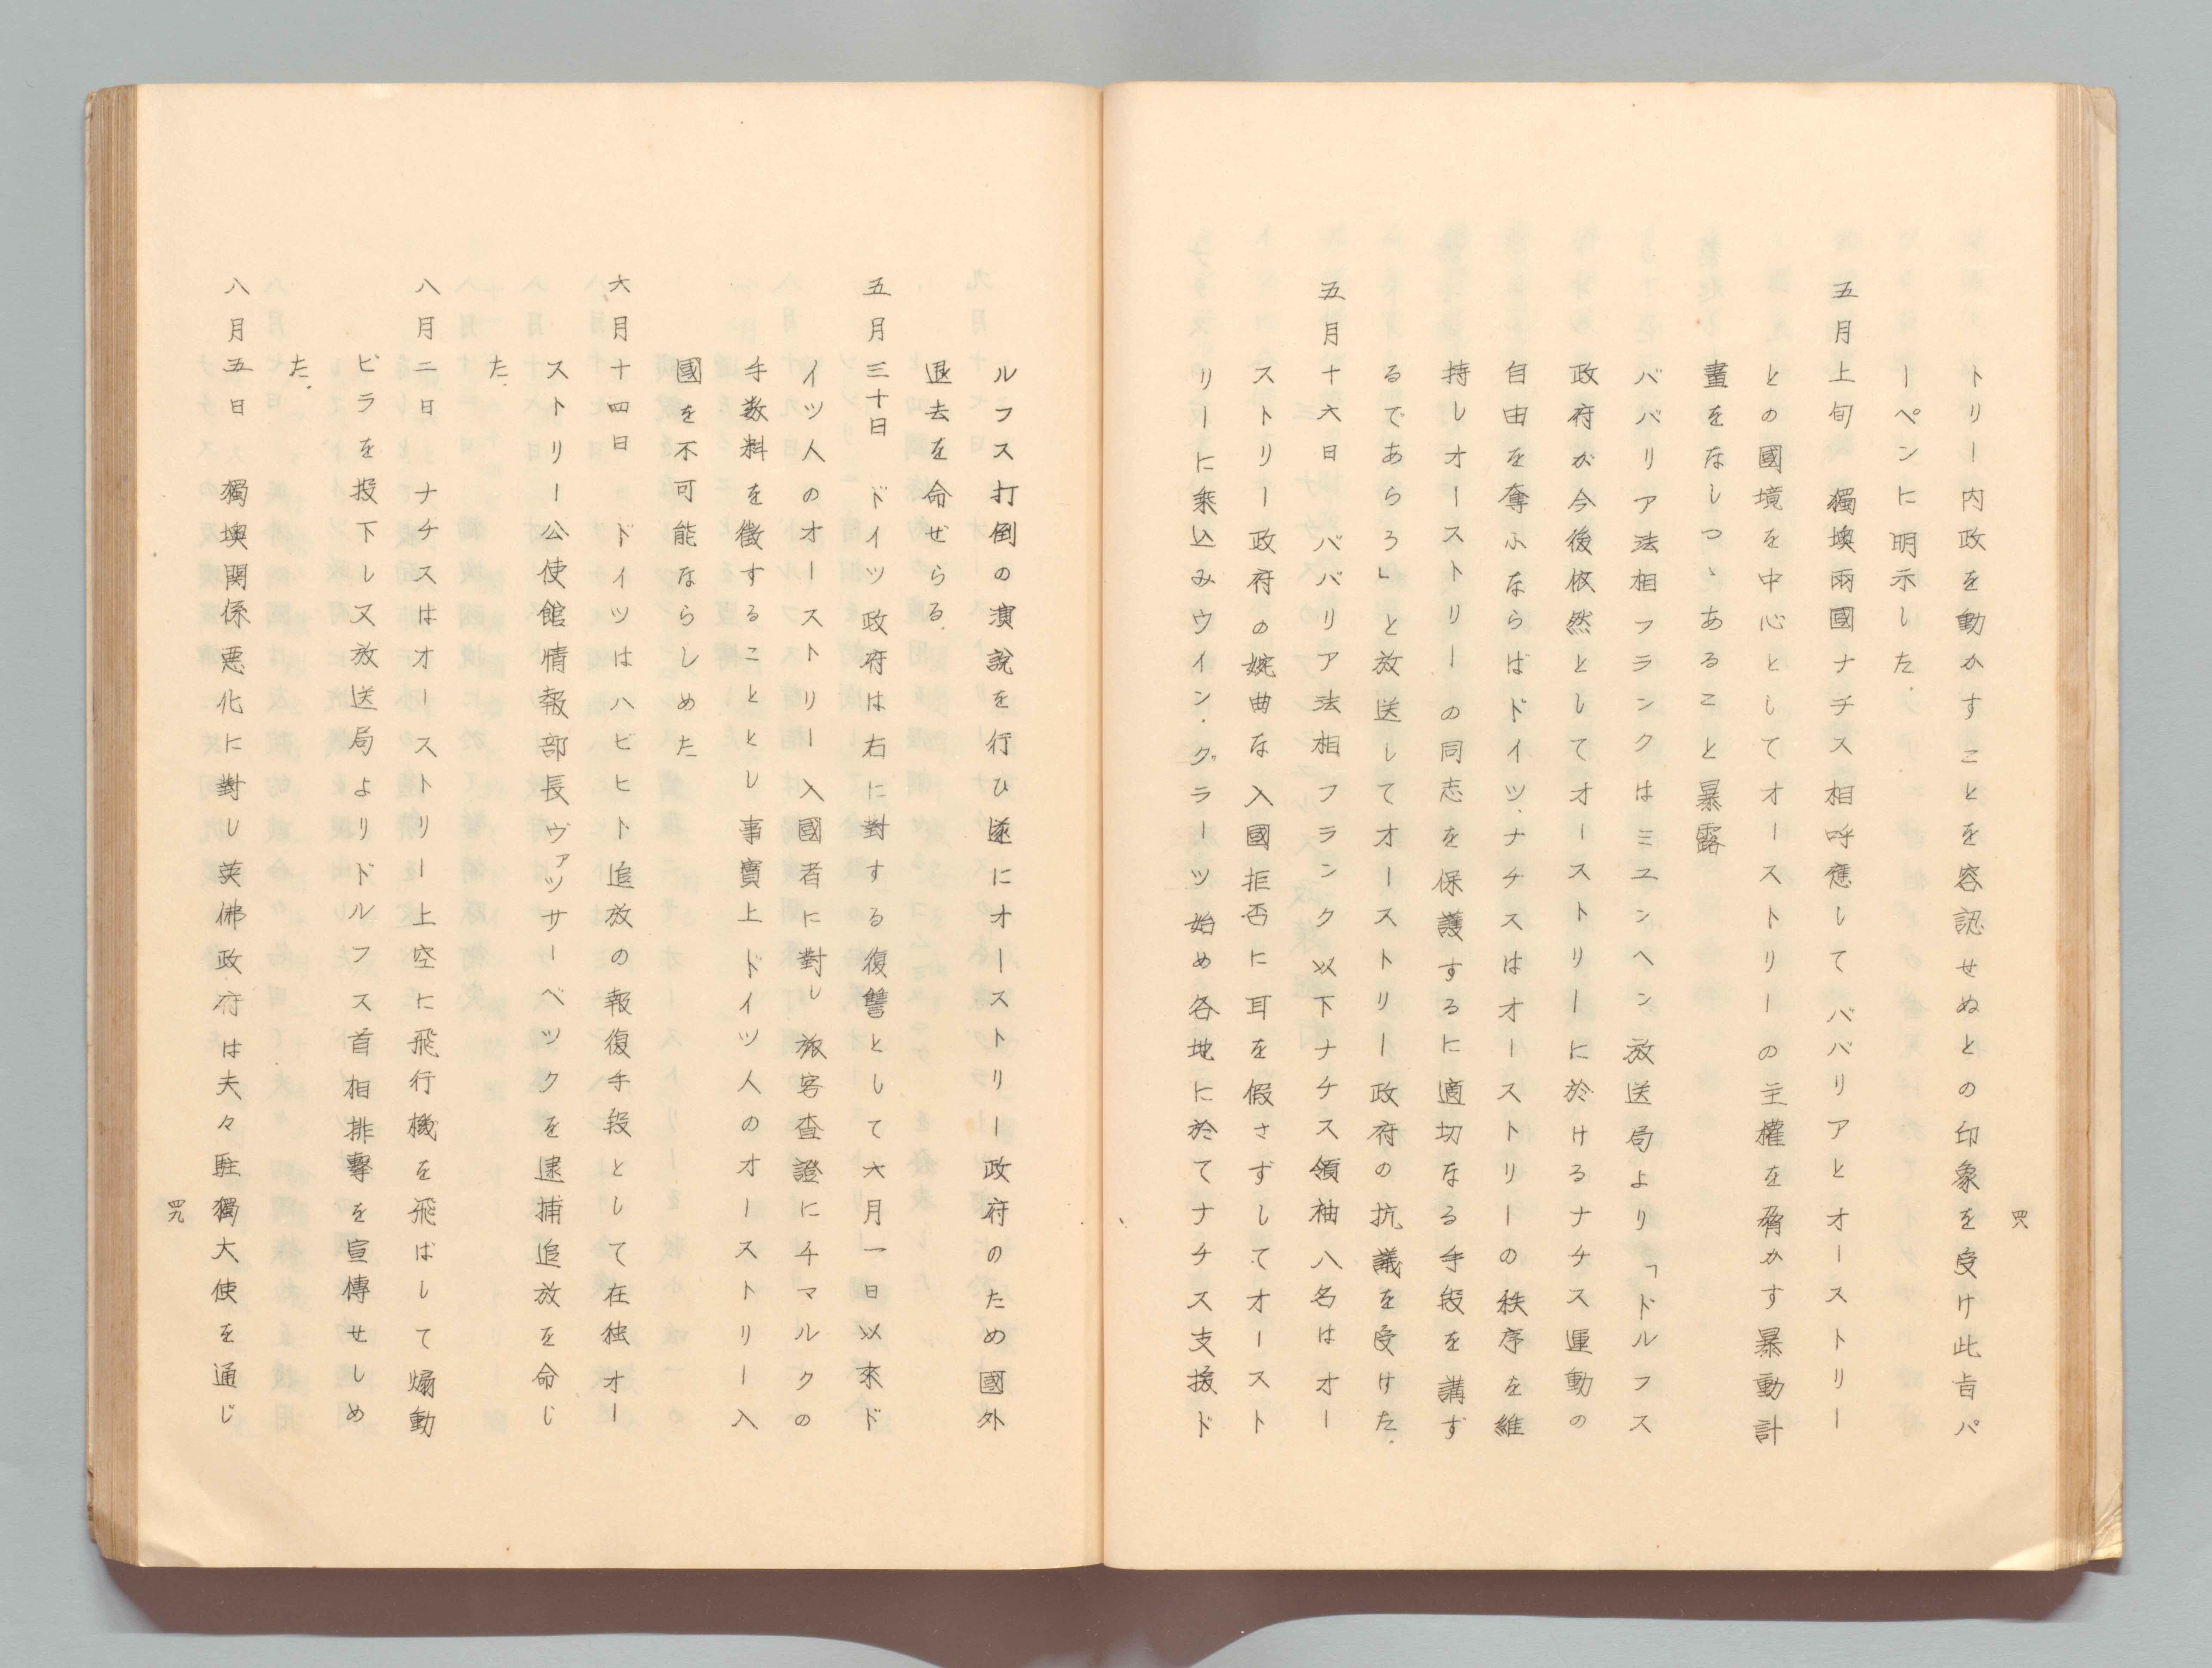 四八
トリー内政を動かすことを容認せぬとの印象を受け此旨パ
ーペンに明示した.
五月上旬　獨墺兩國ナチス相呼應してババリアとオーストリー
との國境を中心としてオーストリーの主權を脅かす暴動計
畫をなしつゝあること暴露
ババリア法相フランクはミユンヘン放送局より「ドルフス
政府が今後依然としてオーストリーに於けるナチス運動の
自由を奪ふならばドイツ.ナチスはオーストリーの秩序を維
持しオーストリーの同志を保護するに適切なる手段を講ず
るであらう」と放送してオーストリー政府の抗議を受けた.
五月十六日　ババリア法相フランク以下ナチス領袖八名はオー
ストリー政府の婉曲な入國拒否に耳を假さずしてオースト
リーに乘込みウイン.グラーツ始め各地に於てナチス支援ド
ルフス打倒の演説を行ひ遂にオーストリー政府のため國外
退去を命ぜらる.
五月三十日　ドイツ政府は右に對する復讐として六月一日以來ド
イツ人のオーストリー入國者に對し旅客査證に千マルクの
手数料を徴することとし事實上ドイツ人のオーストリー入
國を不可能ならしめた
六月十四日　ドイツはハビヒト追放の報復手段として在独オー
ストリー公使館情報部長ヴァッサーベックを逮捕追放を命じ
た.
八月二日　ナチスはオーストリー上空に飛行機を飛ばして煽動
ビラを投下し又放送局よりドルフス首相排撃を宣傳せしめ
た.
八月五日　獨墺関係悪化に對し英佛政府は夫々駐獨大使を通じ
四九